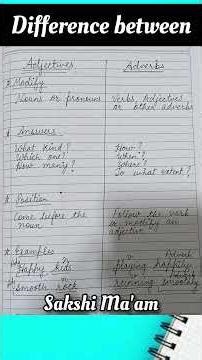 Difference between
Adjectives Adverbs
* Modify
Nouns or pronouns Verbs, Adjectives
or other adverbs
* Answers
What kind? How?
Which one? When?
How many? Where?
To what extent?
* Position
Come before the Follow the verb
noun or modify an
adjective
* Examples
Adverb
Happy kids playing happily
smooth rock running smoothly
Sakshi Ma'am